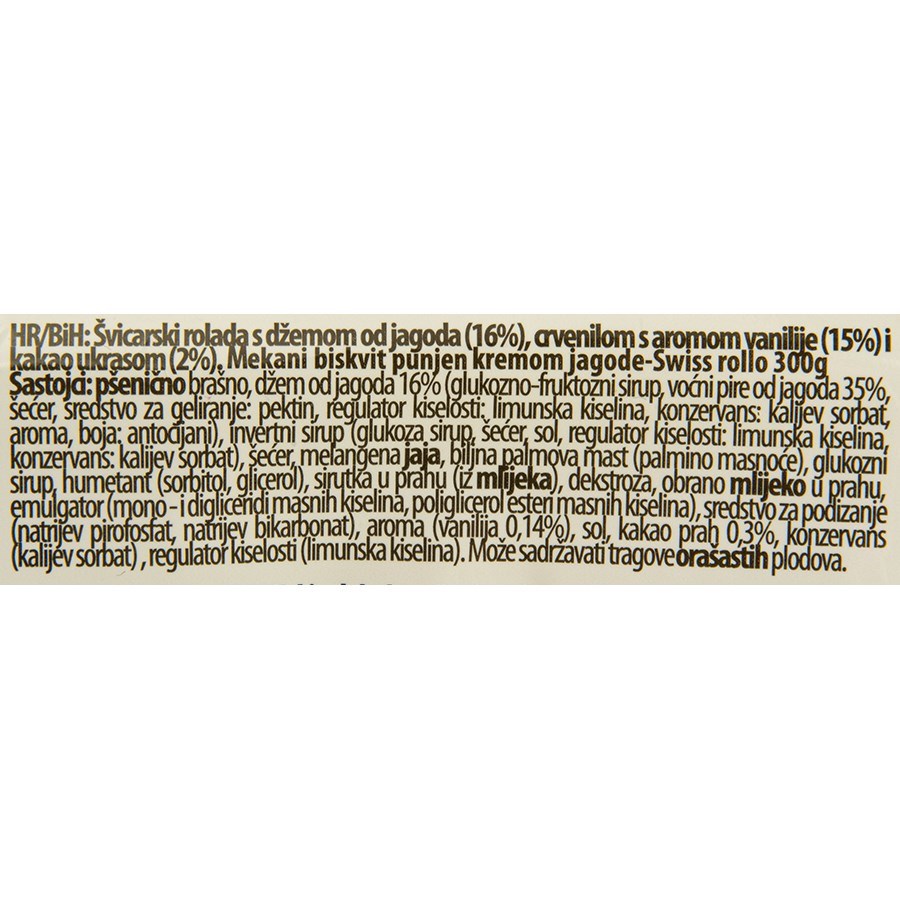 HR/BiH: Švicarski rolada s džemom od jagoda (16%), crvenilom s aromom vanilije (15%) i
kakao ukrasom (2%), Mekani biskvit punjen kremom jagode-Swiss rollo 300g
Sastojci: pšenično brašno, džem od jagoda 16% (glukozno-fruktozni sirup, voćni pire od jagoda 35%,
šećer, sredstvo za geliranje: pektin, regulator kiselosti: limunska kiselina, konzervans: kalijev sorbat,
aroma, boja: antocijani), invertni sirup (glukoza sirup, šećer, sol, regulator kiselosti: limunska kiselina,
konzervans: kalijev sorbat), šećer, melangena jaja, biljna palmova mast (palmino masnoće), glukozni
sirup, humetant (sorbitol, glicerol), sirutka u prahu (iz mlijeka), dekstroza, obrano mlijeko u prahu,
emulgator (mono - i digliceridi masnih kiselina, poliglicerol esteri masnih kiselina), sredstvo za podizanje
(natrijev pirofosfat, natrijev bikarbonat), aroma (vanilija 0,14%), sol, kakao prah 0,3%, konzervans
(kalijev sorbat) , regulator kiselosti (limunska kiselina). Može sadrzavati tragove orasastih plodova.